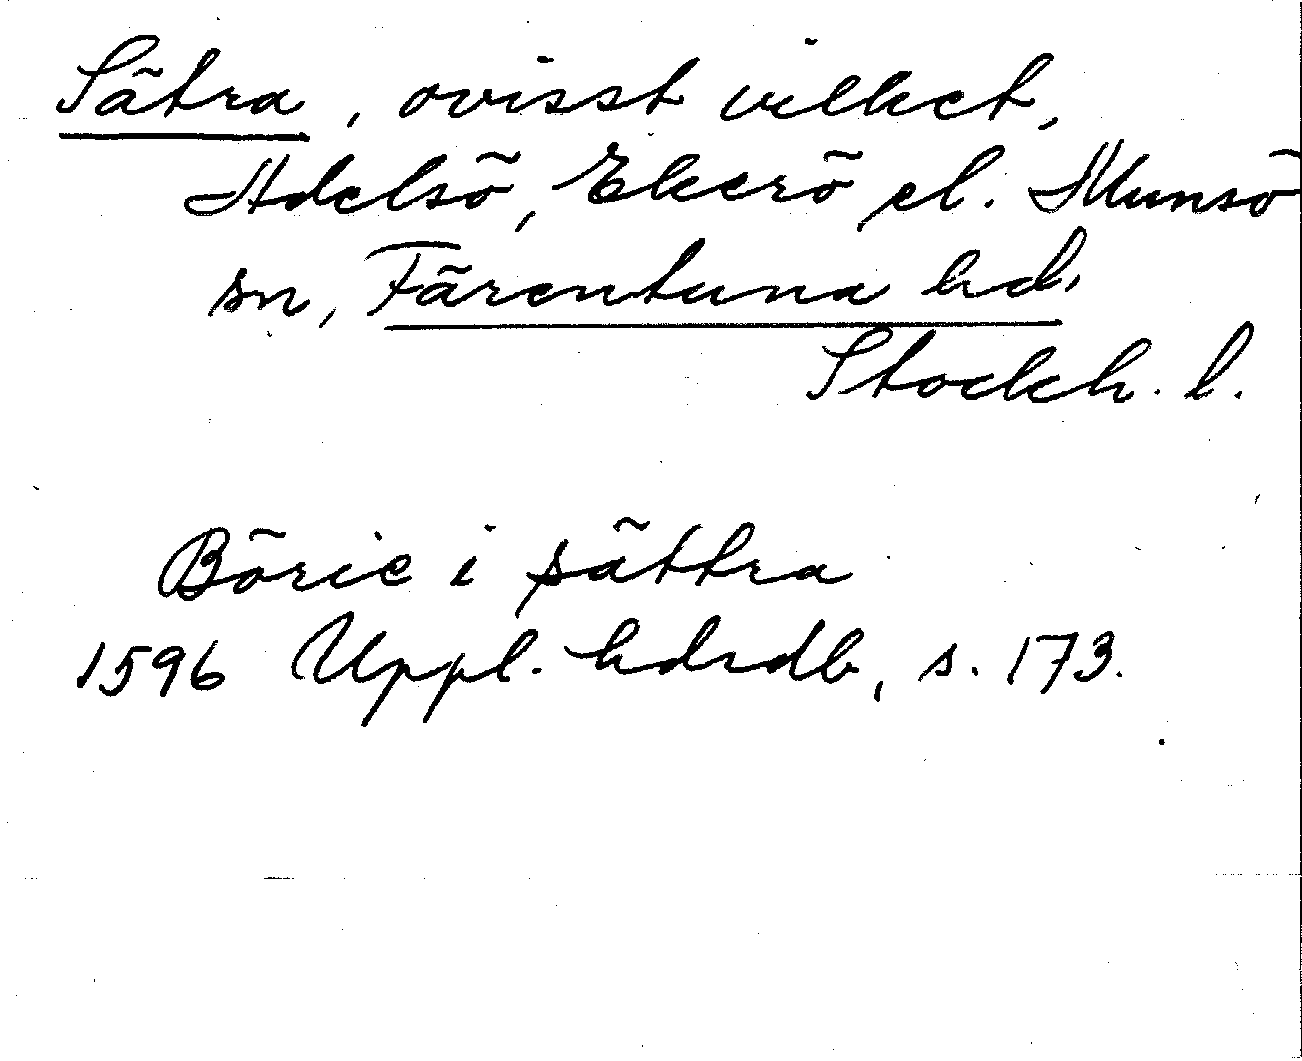 Sätra, ovisst vilket,
Adelsö, Ekerö el. Munsö
sn, Färentuna hd,
Stockh. l.
Börie i sättra
1596 Uppl. hdrdb, s. 173.